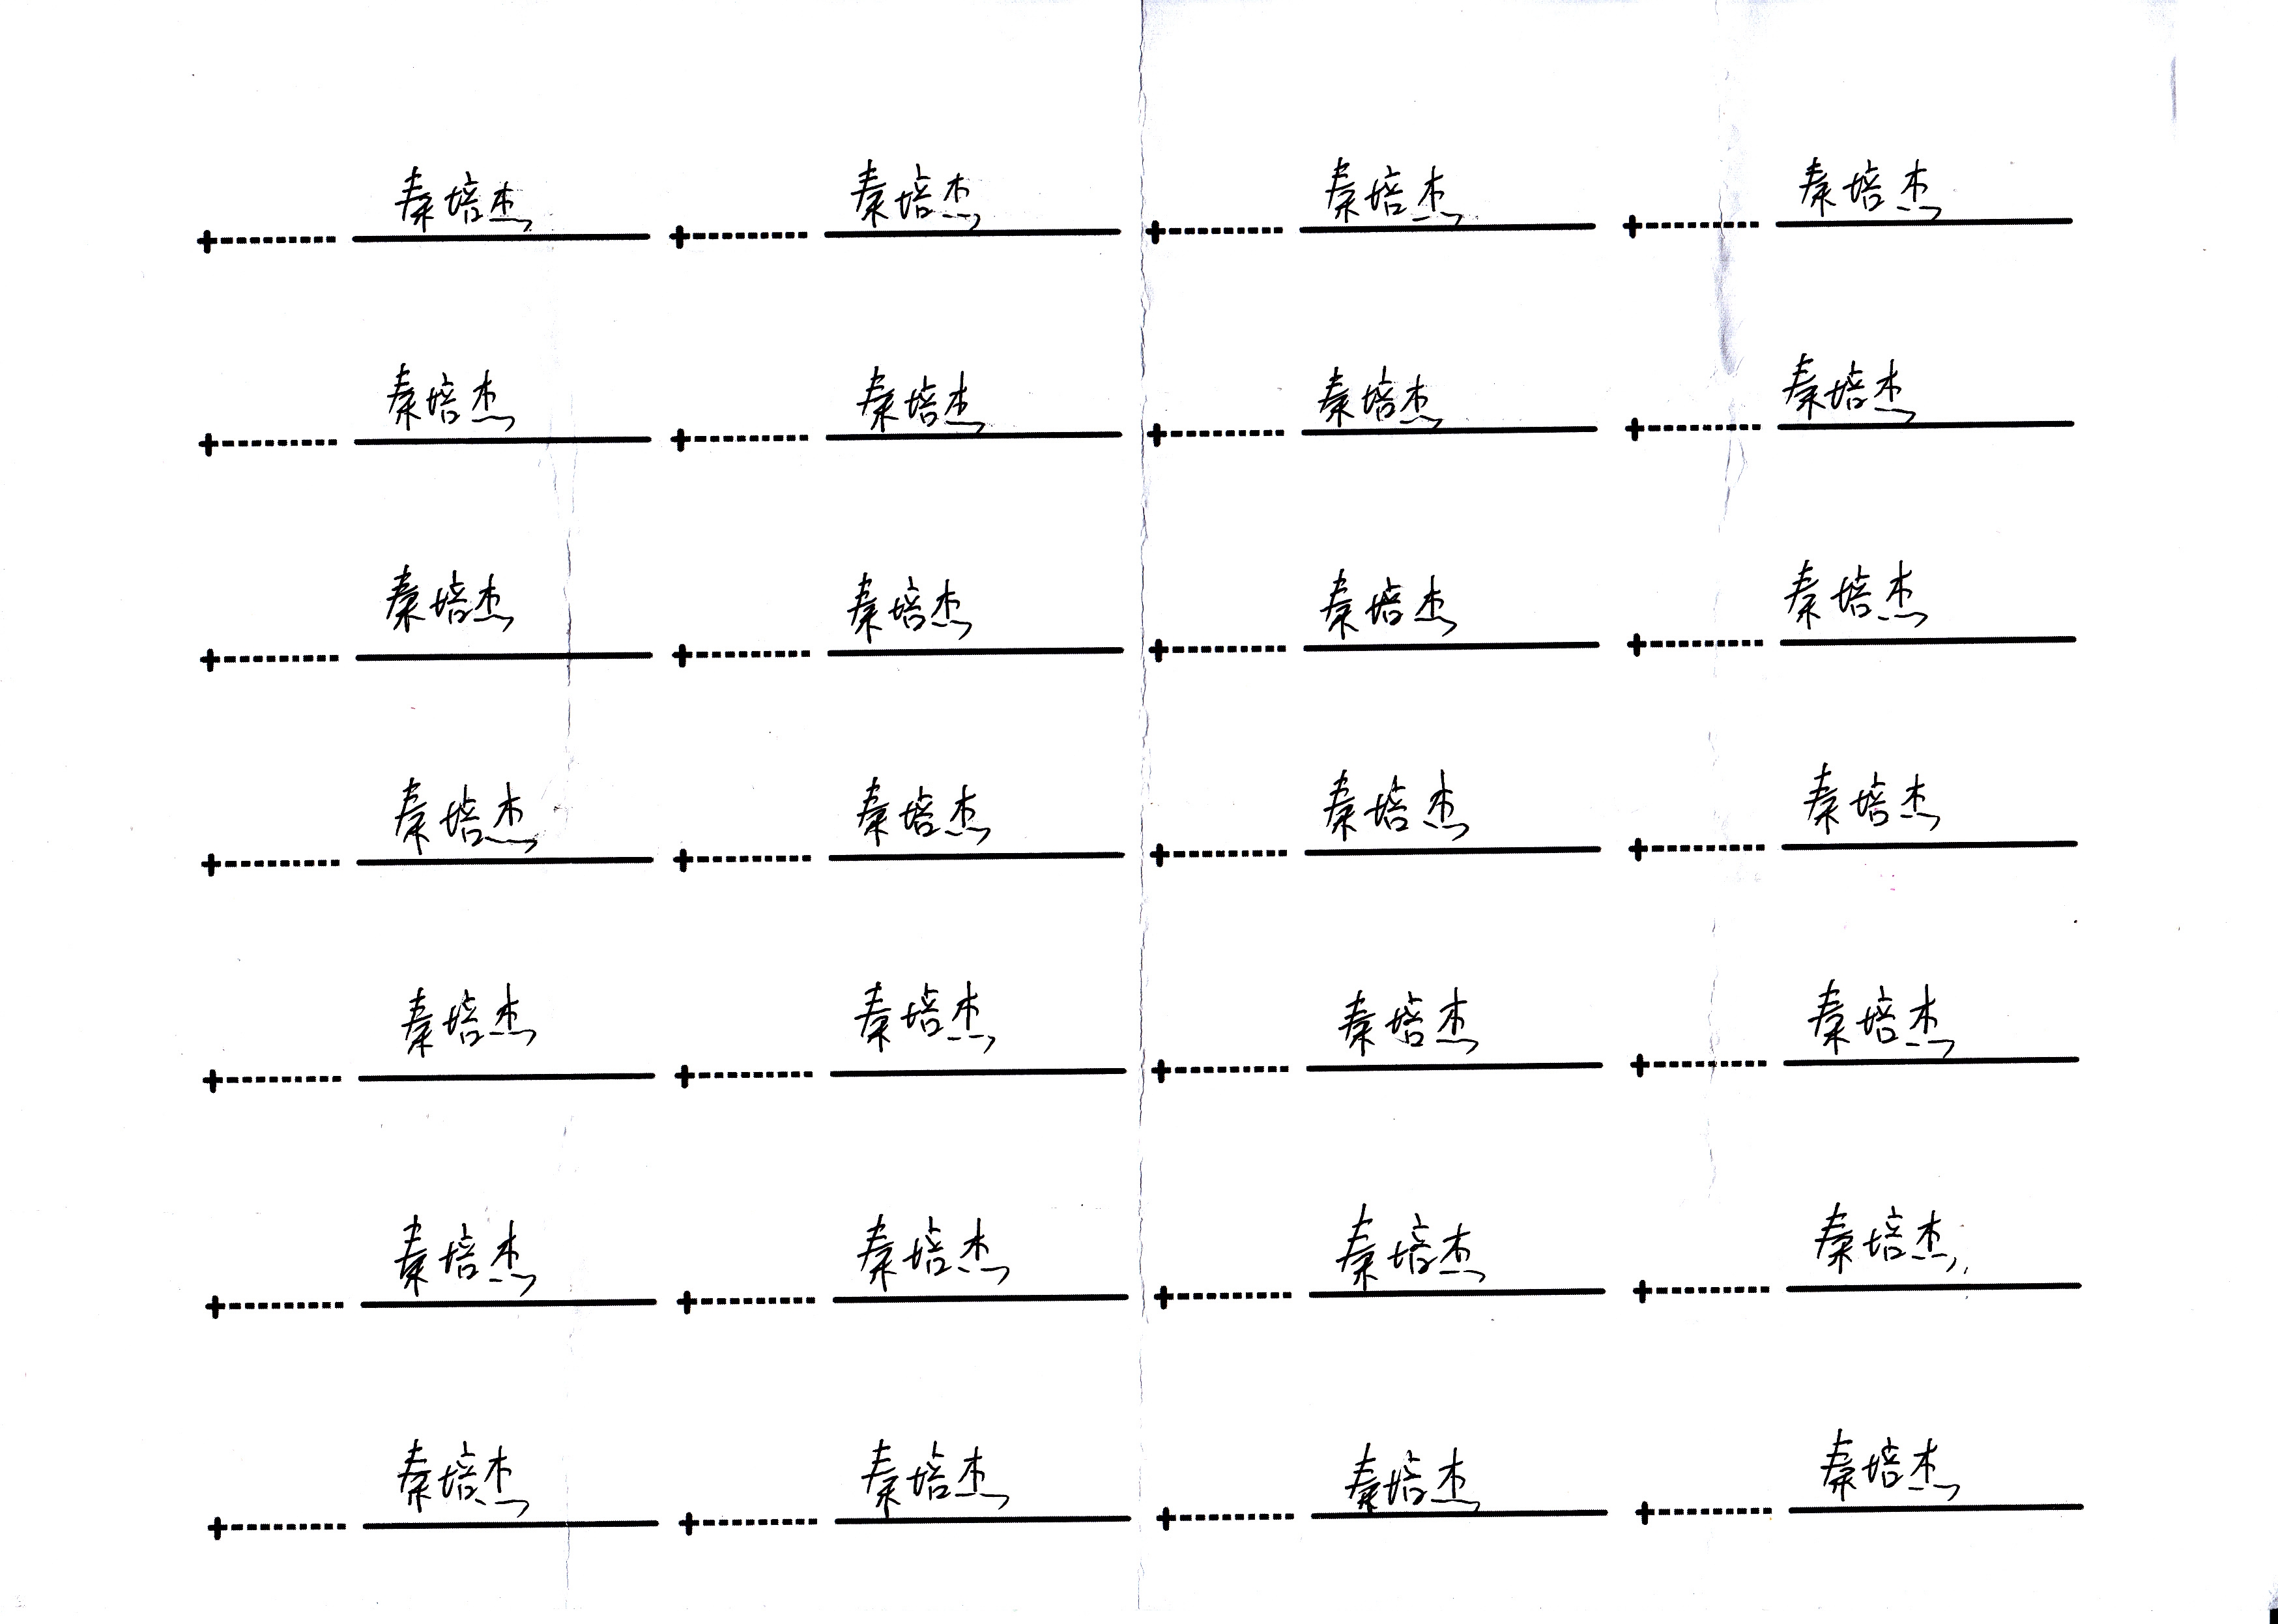 秦培杰 秦培杰 秦培杰 秦培杰
秦培杰 秦培杰 秦培杰 秦培杰
秦培杰 秦培杰 秦培杰 秦培杰
秦培杰 秦培杰 秦培杰 秦培杰
秦培杰 秦培杰 秦培杰 秦培杰
秦培杰 秦培杰 秦培杰 秦培杰
秦培杰 秦培杰 秦培杰 秦培杰